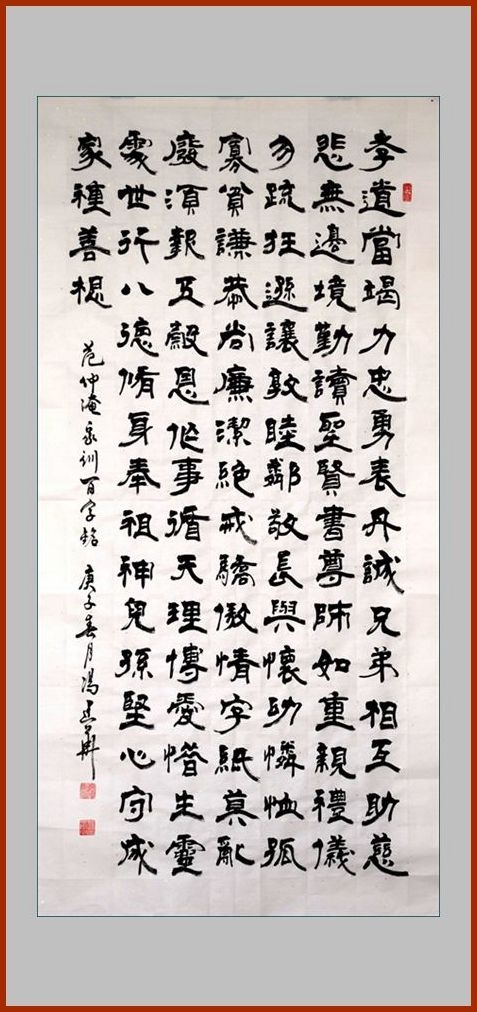 孝道當竭力忠勇表丹誠兄弟相互助慈
悲無邊境勤讀聖賢書尊師如重親禮儀
勿疏狂遜讓敦睦鄰敬長與懷幼憐恤孤
寡貧謙恭尚廉潔絕戒驕傲情字紙莫亂
廢須報五穀恩作事循天理博愛惜生靈
處世行八德脩身奉祖神兒孫堅心守成
家種善根
范仲淹家训百字銘 庚子春月冯